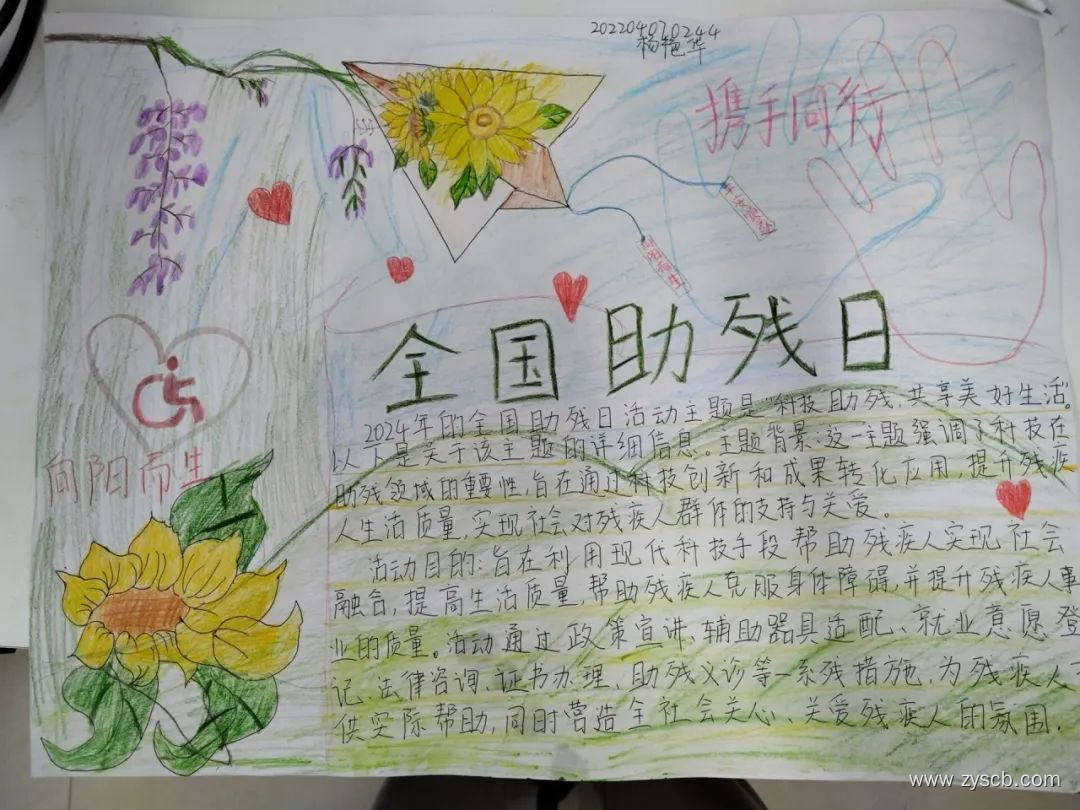 202204070244
杨艳华
携手同行
向阳而生
全国助残日
2024年的全国助残日活动主题是“科技助残,共享美好生活”
以下是关于该主题的详细信息。主题背景:这一主题强调了科技在
助残领域的重要性,旨在通过科技创新和成果转化应用,提升残疾
人生活质量,实现社会对残疾人群体的支持与关爱。
活动目的:旨在利用现代科技手段帮助残疾人实现社会
融合,提高生活质量,帮助残疾人克服身体障碍,并提升残疾人事
业的质量。活动通过政策宣讲、辅助器具适配、就业意愿登
记、法律咨询、证书办理、助残义诊等一系残措施,为残疾人
供实际帮助,同时营造全社会关心、关爱残疾人的氛围.
向阳而生
www.zyscb.com